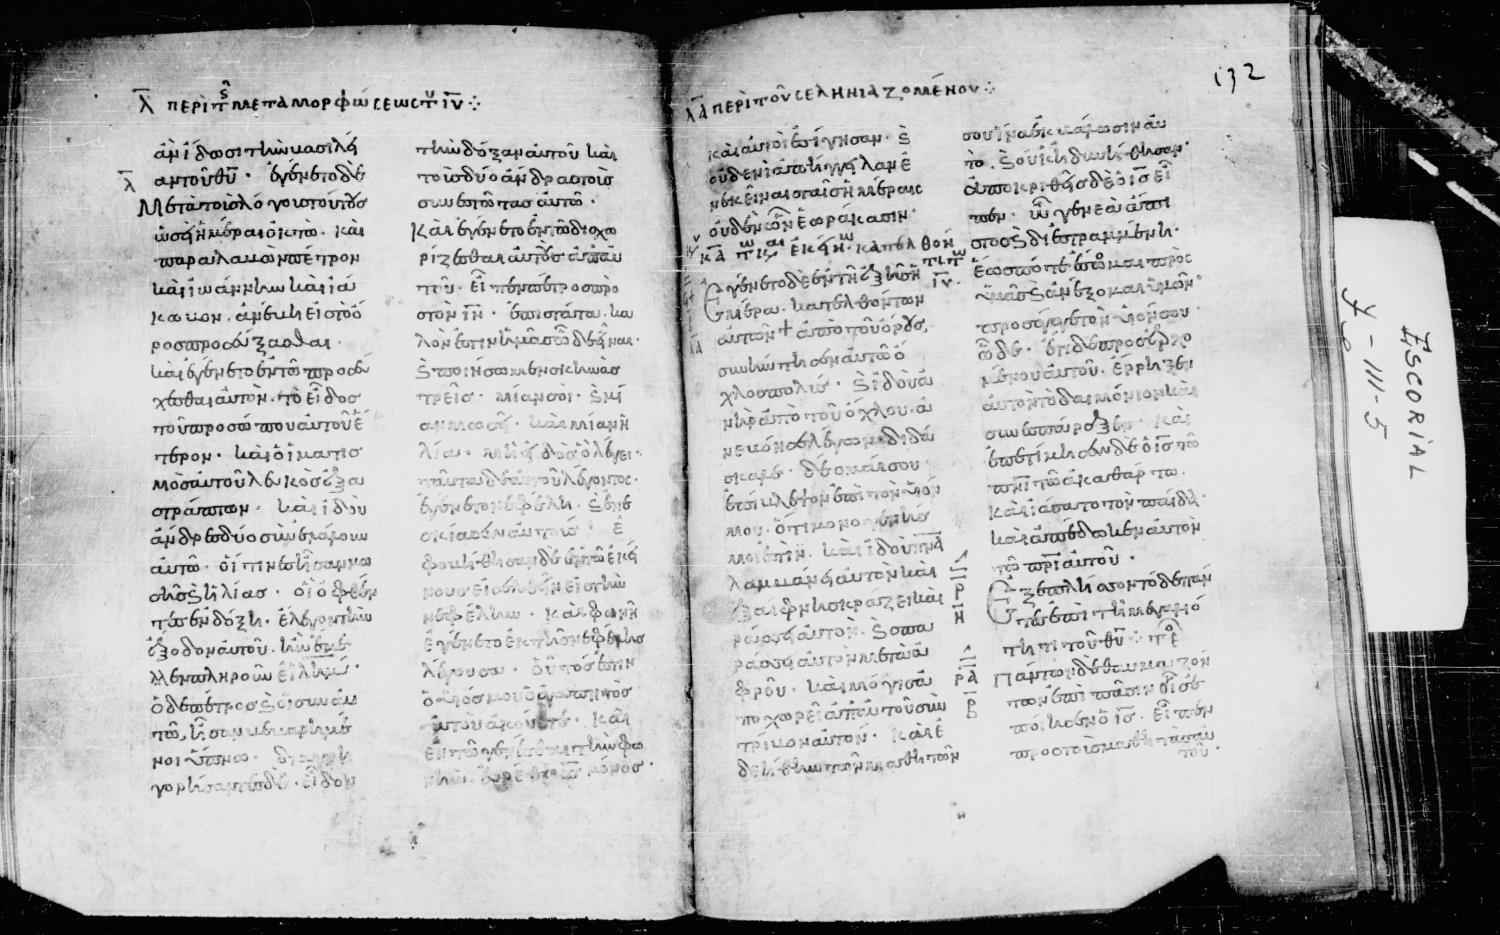 λ̅ περὶ τ̑ς μεταμορφώσεως τ̑υ ι̅υ̅ ⁘
ἂν ἴδωσι τὴν βασιλεί
λ̅ αν τοῦ θ̅υ̅ · ἐγένετο δὲ
Μετὰ τοὺς λόγους τούτους
ὡσεὶ ἡμέραι ὀκτὼ · καὶ
παραλαβὼν πέτρον
καὶ ἰωάννην καὶ ἰά
κωβον · ἀνέβη εἰς τὸ ὄ
ρος προσεύξασθαι ·
καὶ ἐγένετο ἐν τῶ προσεύ
χεσθαι αὐτὸν · τὸ εἶδος
τοῦ προσώπου αὐτοῦ ἕ
τερον · καὶ ὁ ἱματισ
μὸς αὐτοῦ λευκὸς ἐξα
στράπτων · καὶ ἰδοὺ
ἄνδρες δύο συνελάλουν
αὐτῶ · οἵτινες ἦσαν μω
σῆς ϗ ἠλίας · οἳ ὀφθέν
τες ἐν δόξη · ἔλεγον τὴν
ἔξοδον αὐτοῦ · ἣν ἔμε
λλεν πληροῦν ἐν ἱλημ ·
ὁ δὲ πέτρος ϗ οἱ σὺν αὐ
τῶ, ἦσαν βεβαρημέ
νοι ὕπνω · διαγρη
γορήσαντες δὲ · εἶδον
τὴν δόξαν αὐτοῦ καὶ
τοὺς δύο ἄνδρας τοὺς
συνεστῶτας αὐτῶ ·
Καὶ ἐγένετο ἐν τῶ διαχω
ρίζεσθαι αὐτοὺς ἀπ' αὐ
τοῦ · εἶπεν πέτρος πρὸ
σ τὸν ι̅ν̅ · ἐπιστάτα · κα
λόν ἐστιν ἡμᾶς ὧδε εἶναι ·
ϗ ποιήσωμεν σκηνὰς
τρεῖς · μίαν σοὶ · ϗ μί
αν μωσεῖ · καὶ μίαν ἠ
λία · μὴ εἰδὼς ὃ λέγει ·
ταῦτα δὲ αὐτοῦ λέγοντος ·
ἐγένετο νεφέλη · ϗ ἐπε
σκίασεν αὐτούς · ἐ
φοβήθησαν δὲ ἐν τῶ ἐκεί
νους εἰσελθεῖν εἰς τὴν
νεφέλην · καὶ φωνὴ
ἐγένετο ἐκ τῆς νεφέλης
λέγουσα · οὗτός ἐστιν
ὁ υἱός μου ὁ ἀγαπητὸς
αὐτοῦ ἀκούετε · καὶ
ἐν τῶ γενέσθαι τὴν φω
νὴν · εὑρέθη ι̅ς̅ μόνος ·
λ̅α̅ περὶ τοῦ σεληνιαζομένου ⁘
132
καὶ αὐτοὶ ἐσίγησαν · ϗ
οὐδενὶ ἀπήγγειλαν ἐ
ν ἐκείναις ταῖς ἡμέραις
οὐδὲν ὧν ἑωράκασιν ·
Ἐγένετο δὲ ἐν τῆ ἑξῆς ἡ
μέρα · κατελθόντων
αὐτῶν ἀπὸ τοῦ ὄρους,
συνήντησεν αὐτῶ ὄ
χλος πολύς · ϗ ἰδοὺ ἀ
νὴρ ἀπὸ τοῦ ὄχλου · ἀ
νεβόησε λέγων · διδά
σκαλε · δέομαί σου
ἐπίβλεψον ἐπὶ τὸν υἱόν
μου · ὅτι μονογενής
μοί ἐστιν · καὶ ἰδοὺ π̅ν̅α̅
λαμβάνει αὐτὸν καὶ
ἐξαίφνης κράζει καὶ
ῥήσσει αὐτὸν · ϗ σπα
ράσσει αὐτὸν μετὰ ἀ
φροῦ · καὶ μόγις ἀ
ποχωρεῖ ἀπ' αὐτοῦ συν
τρίβον αὐτὸν · καὶ ἐ
δεήθην τῶν μαθητῶν
σου ἵνα ἐκβάλωσιν αὐ
τὸ · ϗ οὐκ ἠδυνήθησαν ·
ἀποκριθεὶς δὲ ὁ ι̅ς̅ εἶ
πεν · ὦ γενεὰ ἄπι
στος ϗ διεστραμμένη ·
ἕως πότε ἔσομαι πρὸς
ὑμᾶς ϗ ἀνέξομαι ὑμῶν ·
προσάγαγε τὸν υἱόν σου
ὧδε · ἔτι δὲ προσερχο
μένου αὐτοῦ · ἔρρηξεν
αὐτὸν τὸ δαιμόνιον καὶ
συνεσπάραξεν · καὶ
ἐπετίμησεν δὲ ὁ ι̅ς̅ τῶ
π̅ν̅ι̅ τῶ ἀκαθάρτω ·
καὶ ἰάσατο τὸν παῖδα ·
καὶ ἀπέδωκεν αὐτὸν
τῶ π̅ρ̅ι̅ αὐτοῦ ·
Ἐξεπλήσσοντο δὲ πάν
τες ἐπὶ τῆ μεγαλειό
τητι τοῦ θ̅υ̅ ⁘
Πάντων δὲ θαυμαζόν
των ἐπὶ πᾶσιν οἷς ἐ
ποίησεν ὁ ι̅ς̅ · εἶπεν
πρὸς τοὺς μαθητὰς αὐ
τοῦ ·
ESCORIAL
Ψ-III-5